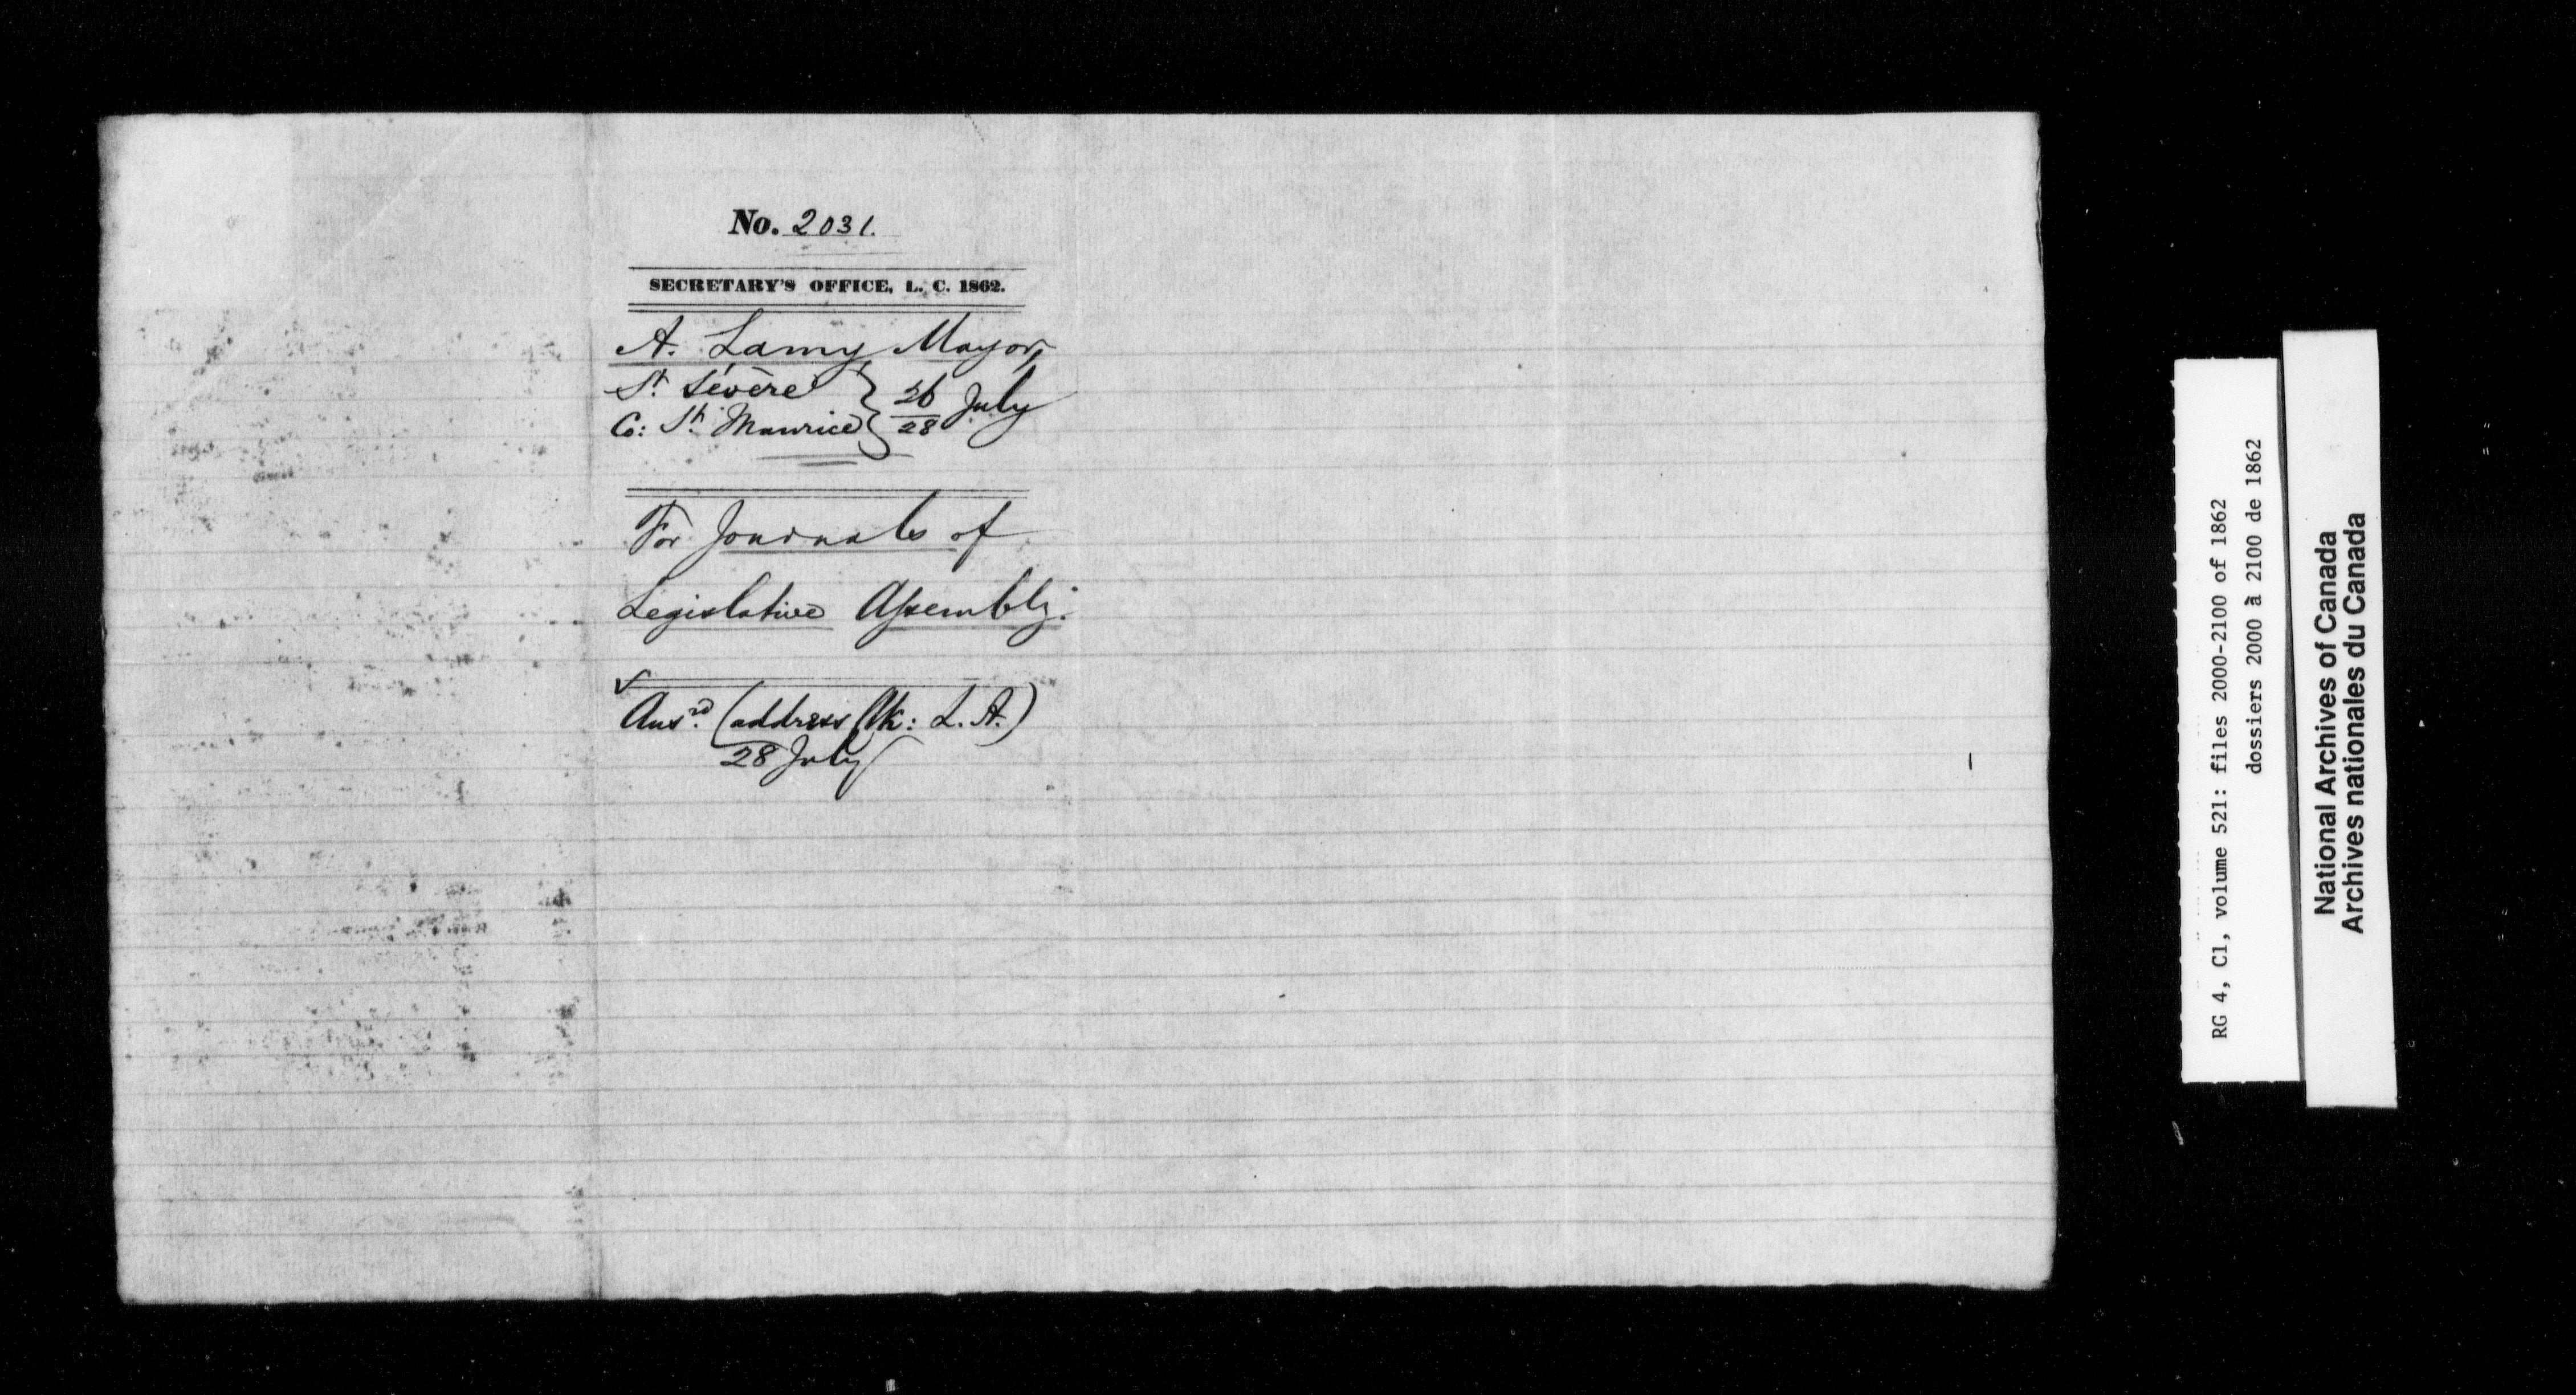 No. 2031.
SECRETARY'S OFFICE, L. C. 1862.
A. Lamy Mayor,
St. Sévère } 26 July
Co: St. Maurice } 28
For Journals of
Legislative Assembly.
✓
Ansd. (address Clk: L. A.)
28 July
RG 4, C1, volume 521: files 2000-2100 of 1862
dossiers 2000 à 2100 de 1862
National Archives of Canada
Archives nationales du Canada